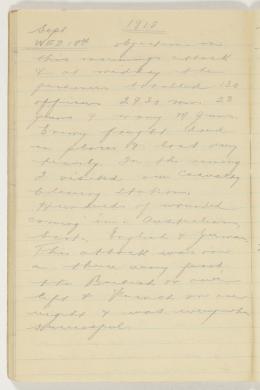 Sept 1918
WED 18th Objectives in
this mornings attack
& at midday the
prisoners totalled 130
officers 2930 men 23
guns & many M Guns.
Enemy fought hard
in places & lost very
heavily. In the evening
I visited our Casualty
Clearing Station.
Hundreds of wounded
coming in Australian,
English & German
This attack was
on three army front
the British on our
left & French on our
right & was everywhere
successful.